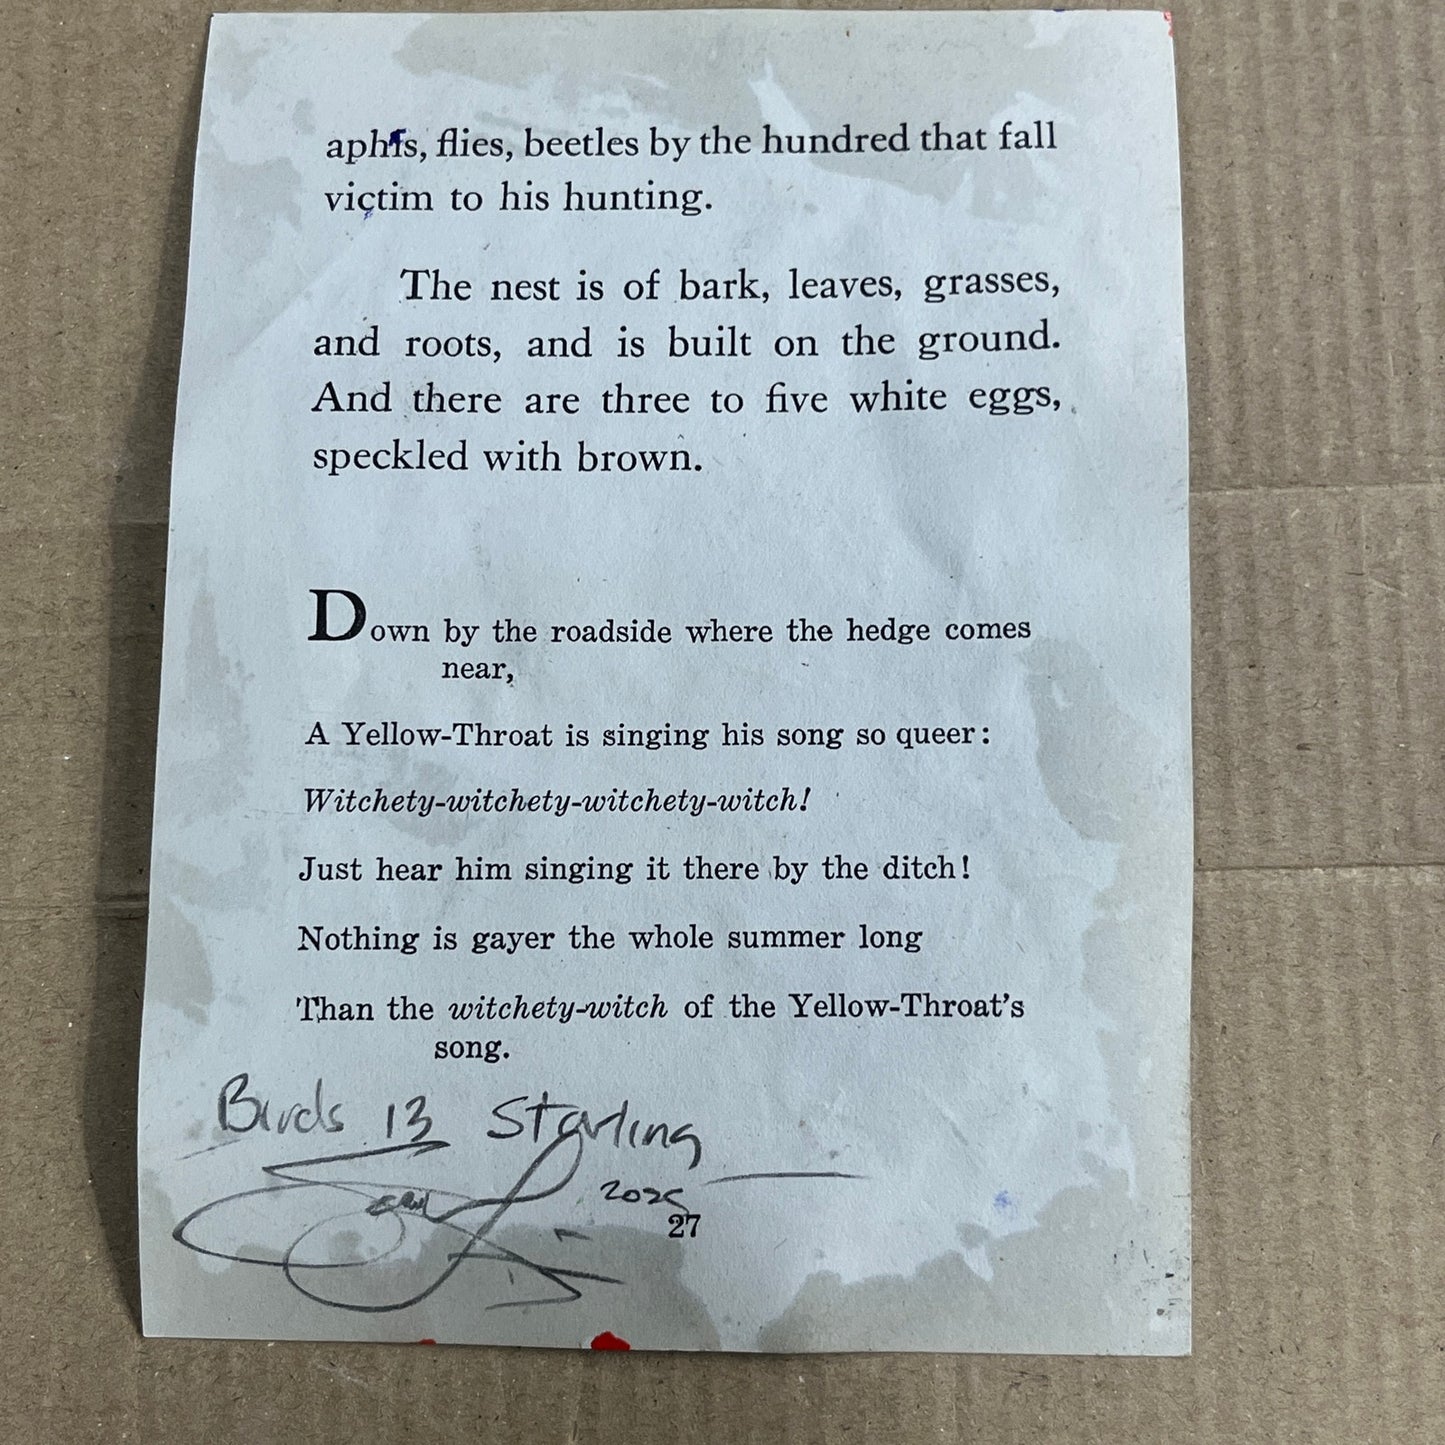 aphis, flies, beetles by the hundred that fall
victim to his hunting.
The nest is of bark, leaves, grasses,
and roots, and is built on the ground.
And there are three to five white eggs,
speckled with brown.
Down by the roadside where the hedge comes
near,
A Yellow-Throat is singing his song so queer:
Witchety-witchety-witchety-witch!
Just hear him singing it there by the ditch!
Nothing is gayer the whole summer long
Than the witchety-witch of the Yellow-Throat's
song.
Birds 13 Starling
2025
27